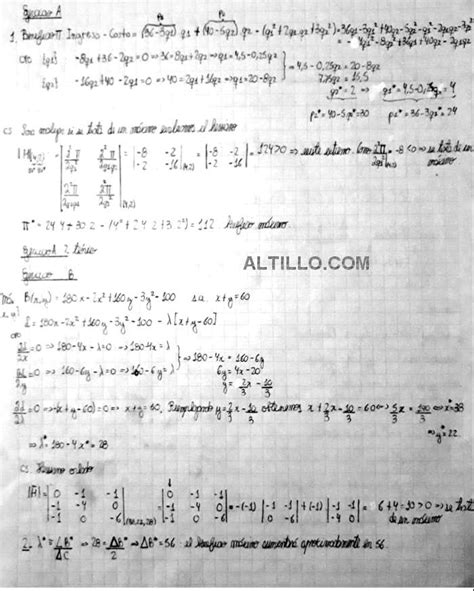 Ejercicio A
1. Beneficio π Ingreso - Costo = (36-3q1) q1 + (40-5q2) q2 - (q1² + 2q1q2 + 3q2²) = 36q1 - 3q1² + 40q2 - 5q2² - q1² - 2q1q2 - 3q2²
= -4q1² - 8q2² + 36q1 + 40q2 - 2q1q2
CPO [q1] -8q1 + 36 - 2q2 = 0 => 36 = 8q1 + 2q2 => q1 = 4,5 - 0,25q2
[q2] -16q2 + 40 - 2q1 = 0 => 40 = 2q1 + 16q2 => q1 = 20 - 8q2
4,5 - 0,25q2 = 20 - 8q2
7,75q2 = 15,5
q2* = 2 => q1* = 4,5 - 0,25q2 = 4
p2* = 40 - 5q2* = 30 p1* = 36 - 3q1* = 24
CS se trata de un máximo el hessiano
|H| = = |-8 -2| |-2 -16| (4,2) = |-8 -2| |-2 -16| = 124 > 0 => existe extremo. Como = -8 < 0 => se trata de un máximo
π* = 24.4 + 30.2 - (4² + 2.4.2 + 3.2²) = 112. Beneficio máximo.
Ejercicio A 2 teórico
Ejercicio B
ALTILLO.COM
B(x,y) = 180x - 2x² + 160y - 3y² - 100 s.a. x+y=60
L = 180x - 2x² + 160y - 3y² - 100 - λ[x+y-60]
CPO
∂L/∂x = 0 => 180 - 4x - λ = 0 => 180 - 4x = λ
∂L/∂y = 0 => 160 - 6y - λ = 0 => 160 - 6y = λ
=> 180 - 4x = 160 - 6y
6y = 4x - 20
y = 2/3 x - 10/3
∂L/∂λ = 0 => -(x+y-60) = 0 => x+y = 60, Reemplazando y = 2/3 x - 10/3 obtenemos x + 2/3 x - 10/3 = 60 <=> 5x/3 = 190/3 <=> x* = 38
=> y* = 22
=> λ* = 180 - 4x* = 28
CS Hessiano orlado
|H| = |0 -1 -1| |-1 -4 0| |-1 0 -6| (38,22,28) = |0 -1 -1| |-1 -4 0| |-1 0 -6| = -(-1) |-1 -1| |0 -6| + (-1) |-1 -1| |-4 0| = 6 + 4 = 10 > 0 => se trata
de un máximo
2. λ* = ΔB*/ΔC => 28 = ΔB*/2 => ΔB* = 56 el beneficio máximo aumentará aproximadamente en 56.